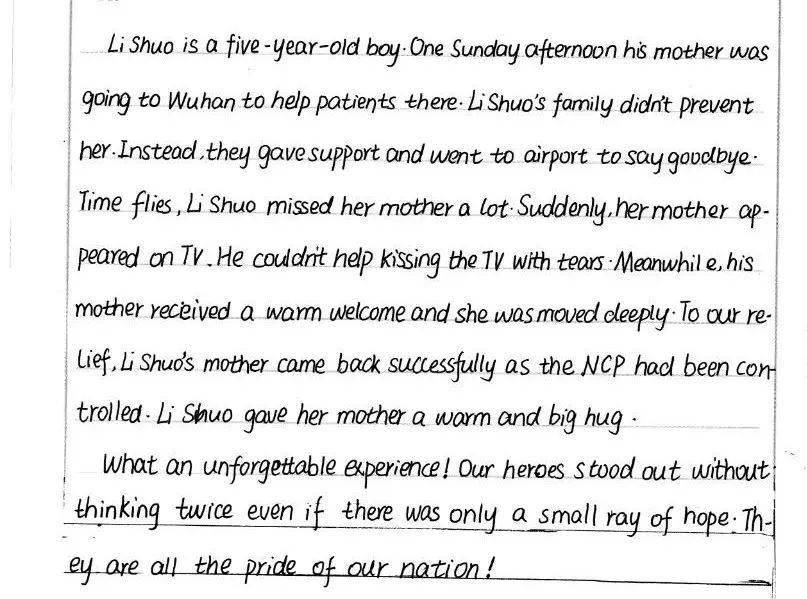 Li Shuo is a five-year-old boy. One Sunday afternoon his mother was
going to Wuhan to help patients there. Li Shuo's family didn't prevent
her. Instead, they gave support and went to airport to say goodbye.
Time flies, Li Shuo missed her mother a lot. Suddenly, her mother ap-
peared on TV. He couldn't help kissing the TV with tears. Meanwhile, his
mother received a warm welcome and she was moved deeply. To our re-
lief, Li Shuo's mother came back successfully as the NCP had been con-
trolled. Li Shuo gave her mother a warm and big hug.
What an unforgettable experience! Our heroes stood out without
thinking twice even if there was only a small ray of hope. Th-
ey are all the pride of our nation!